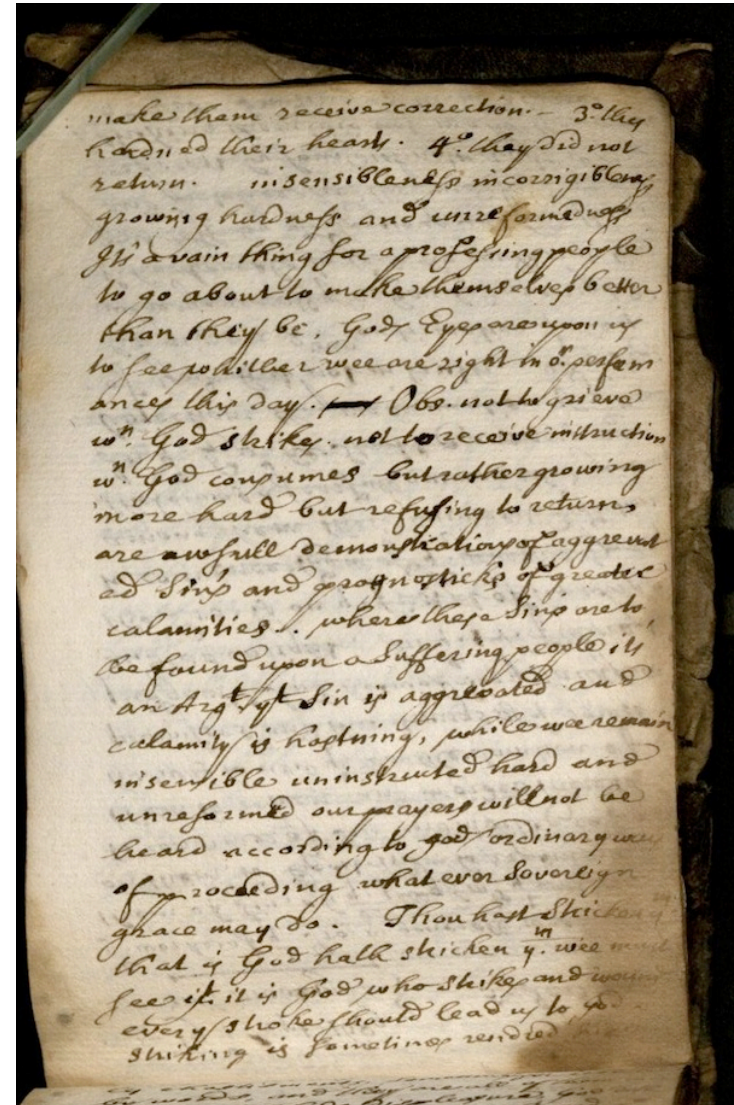 make them receive correction. – 3º. they
hardned their heart. 4º. they did not
return. insensibleness incorrigibleness
growing hardness and unreformedness
It's a vain thing for a professing people
to go about to make themselves better
than they be. Gods Eyes are upon us
to see whither wee are right in oʳ. perform
ances this day. — Obs. not to grieve
wⁿ. God strikes. not to receive instruction
wⁿ. God consumes but rather growing
more hard but refusing to return,
are awfull demonstrations of aggrevat
ed Sins and prognosticks of greater
calamities. where these Sins are to
be found upon a Suffering people its
an Argᵗ. yᵗ Sin is aggrevated and
calamity is hastning, while wee remain
insensible uninstructed hard and
unreformed our prayers will not be
heard according to gods ordinary way
of proceeding what ever Sovereign
grace may do. Thou hast Stricken yᵐ
that is God hath stricken yᵐ. wee must
see it. it is God who strikes and wounds
every stroke should lead us to god
striking is sometimes rendred
by words, and